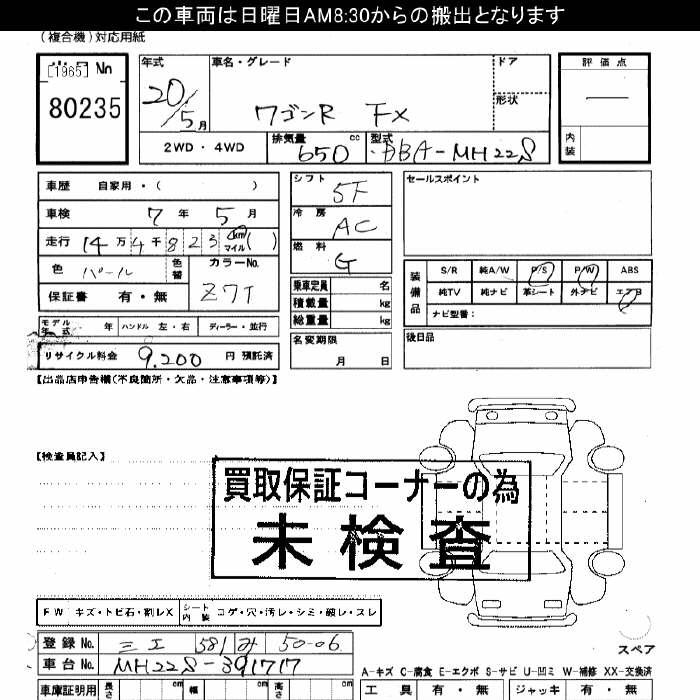 この車両は日曜日AM8:30からの搬出となります
(複合機)対応用紙
[1965] No
80235
年式 20/5月
車名・グレード ワゴンR FX
ドア
形状
評価点
内装
2WD・4WD
排気量 650 cc
型式 DBA-MH22S
車歴 自家用・( )
車検 7年 5月
走行 14万4千823 km マイル ( )
色 パール 色替
カラーNo. Z7T
保証書 有・無
シフト 5F
冷房 AC
燃料 G
乗車定員 名
積載量 kg
総重量 kg
名変期限 月 日
セールスポイント
装備品
S/R 純A/W P/S P/W ABS
純TV 純ナビ 革シート 外ナビ エアB
ナビ型番:
後日品
モデル年式 年 ハンドル 左・右 ディーラー・並行
リサイクル料金 9,200 円 預託済
【出品店申告欄(不良箇所・欠品・注意事項等)】
【検査員記入】
買取保証コーナーの為
未検査
FW キズ・トビ石・割レX
シート内装 コゲ・穴・汚レ・シミ・破レ・スレ
登録No. 三エ 581 み 50-06
車台No. MH22S-391717
スペア
A-キズ C-腐食 E-エクボ S-サビ U-凹ミ W-補修 XX-交換済
車庫証明用 長さ cm 幅 cm 高さ cm
工具 有・無 ジャッキ 有・無